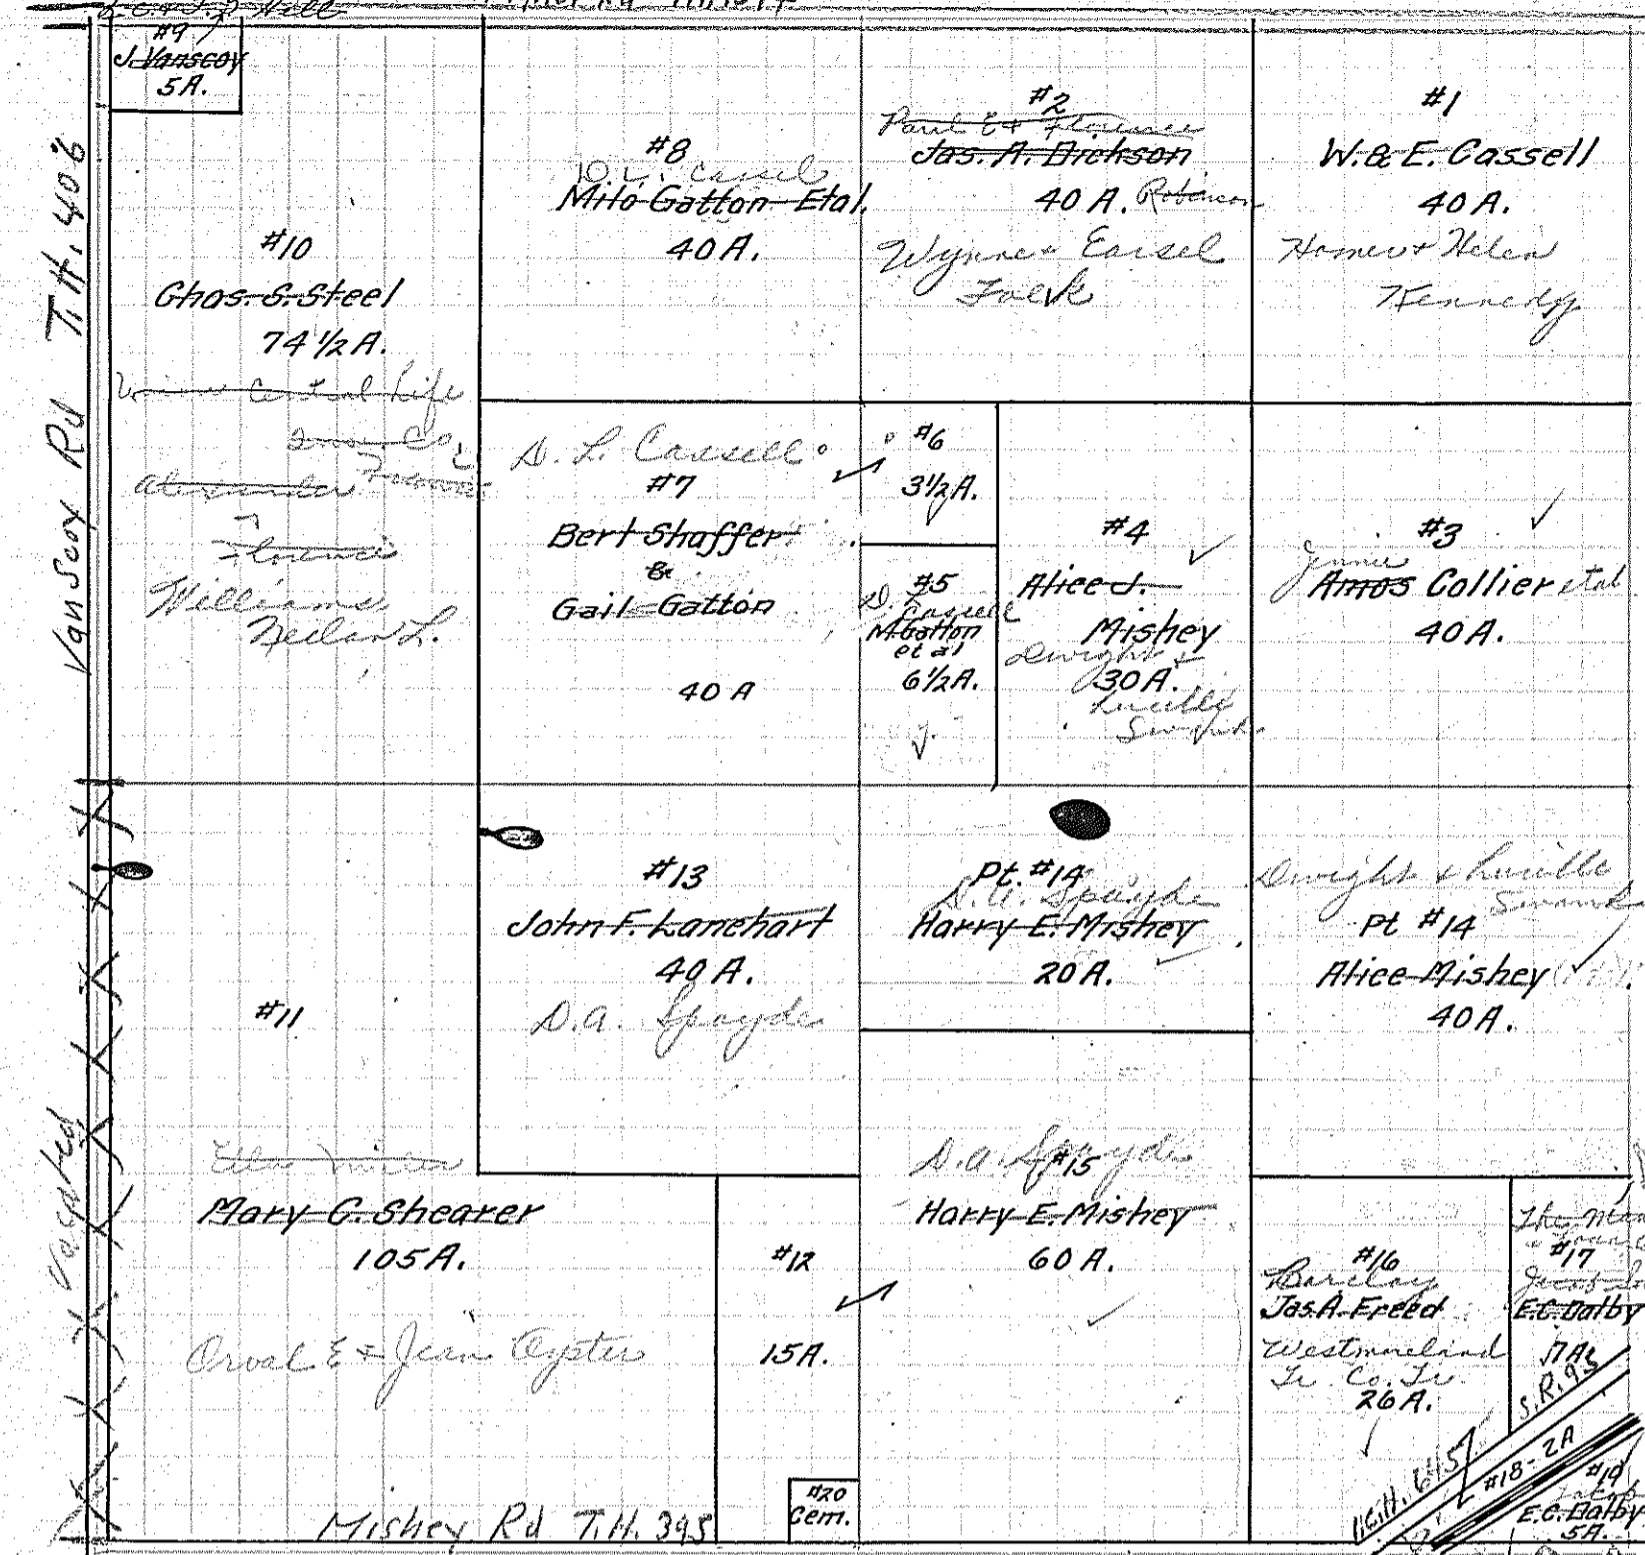 #9
J. Vanscoy
5A.
Vanscoy Rd T.H. 406
#10
Chas. S. Steel
74 1/2 A.
Central Life
Florence
Williams,
Neilan L.
#8
D.L. Cassel
Milo Gatton Etal.
40 A.
#2
Paul E + Florence
Jas. A. Dickson
40 A. Robinson
Wynne + Earsel
#1
W. & E. Cassell
40 A.
Homer + Helen
Kennedy
D. L. Cassell
#7
Bert Shaffer
&
Gail Gatton
40 A
#6
3 1/2 A.
#5
D. L. Cassell
M. Gatton
et al
6 1/2 A.
#4
Alice J.
Mishey
Dwight +
30 A.
Lucille
#3
Jennie
Amos Collier etal
40 A.
#11
Mary C. Shearer
105 A.
Orval E + Jean Oyster
#13
John F. Lanehart
40 A.
D.A. Spayde
Pt. #14
D.A. Spayde
Harry E. Mishey
20 A.
Dwight & Lucille
Swank
Pt #14
Alice Mishey
40 A.
#12
15A.
D.A. Spayde
#15
Harry E. Mishey
60 A.
#16
Barclay
Jas. A. Freed
Westmoreland
Tr. Co. Tr.
26 A.
The
#17
E.C. Dalby
17 A.
S.R. 95
I.C.H. 6457
#18-2A
#19
E.C. Dalby
5A.
#20
Cem.
Vacated
Mishey Rd T.H. 395